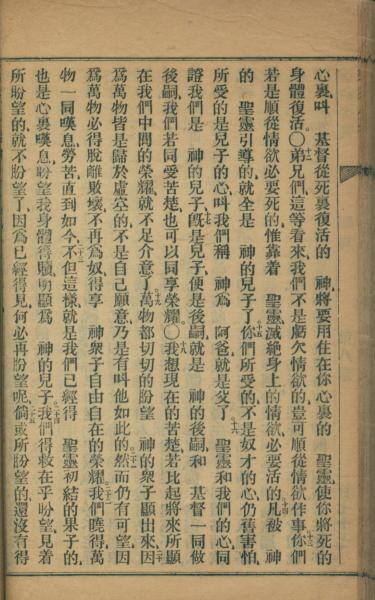 心裏叫　基督從死裏復活的　神將要用住在你心裏的　聖靈使你將死的
身體復活○弟兄們這等看來我們不是虧欠情欲的豈可順從情欲作事你們
若是順從情欲必要死的惟靠着　聖靈滅絕身上的情欲必要活的凡被　神
的　聖靈引導的就全是　神的兒子了你們所受的不是奴才的心仍舊害怕
所受的是兒子的心叫我們稱　神爲　阿爸就是父了　聖靈和我們的心同
證我們是　神的兒子旣是兒子便是後嗣就是　神的後嗣和　基督一同做
後嗣我們若同受苦楚也可以同享榮耀○我想現在的苦楚若比起將來所顯
在我們中間的榮耀就不足介意了萬物都切切的盼望　神的衆子顯出來因
爲萬物皆是歸於虛空的不是自己願意乃是有叫他如此的然而仍有可望因
爲萬物必得脫離敗壞不再爲奴得享　神衆子自由自在的榮耀我們曉得萬
物一同嘆息勞苦直到如今不但這樣就是我們已經得　聖靈初結的果子的
也是心裏嘆息盼望我身體得贖明顯爲　神的兒子我們得救在乎盼望見着
所盼望的就不盼望了因爲已經得見何必再盼望呢倘或所盼望的還沒有得